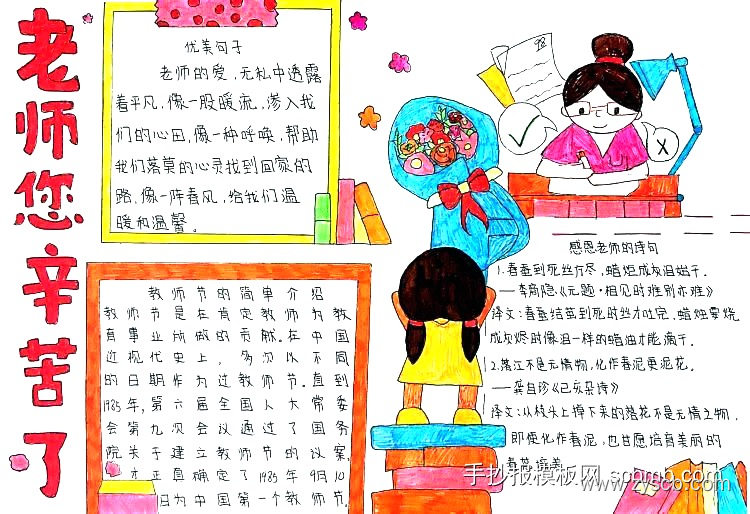 老师您辛苦了
优美句子
老师的爱,无私中透露
着平凡,像一股暖流,渗入我
们的心田,像一种呼唤,帮助
我们落莫的心灵找到回家的
路,像一阵春风,给我们温
暖和温馨。
教师节的简单介绍
教师节是在肯定教师为教
育事业所做的贡献。在中国
近现代史上,多次以不同
的日期作为过教师节。直到
1985年,第六届全国人大常委
会第九次会议通过了国务
院关于建立教师节的议案,
才正真确定了1985年9月10
日为中国第一个教师节.
98
x
感恩老师的诗句
1.春蚕到死丝方尽,蜡炬成灰泪始干.
——李商隐《无题·相见时难别亦难》
译文:春蚕结茧到死时丝才吐完,蜡烛要烧
成灰烬时像泪一样的蜡油才能滴干.
2.落红不是无情物,化作春泥更护花.
——龚自珍《己亥杂诗》
译文:从枝头上掉下来的落花不是无情之物,
即使化作春泥,也甘愿培育美丽的
手抄报模板网
www.zysco.com